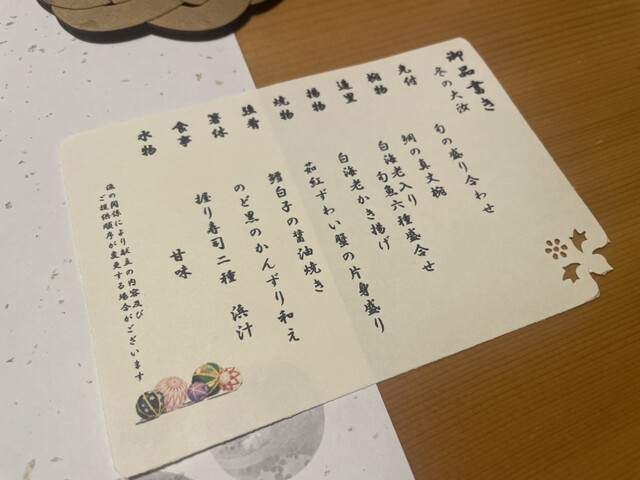 御品書き
冬の大汝
先付 旬の盛り合わせ
椀物 鯛の真丈椀
造里 白海老入り旬魚六種盛合せ
揚物 白海老かき揚げ
焼物 茹紅ずわい蟹の片身盛り
進肴 鱈白子の醤油焼き
箸休 のど黒のかんずり和え
食事 握り寿司二種 浜汁
水物 甘味
漁の関係により献立の内容及び
ご提供順序が変更する場合がございます